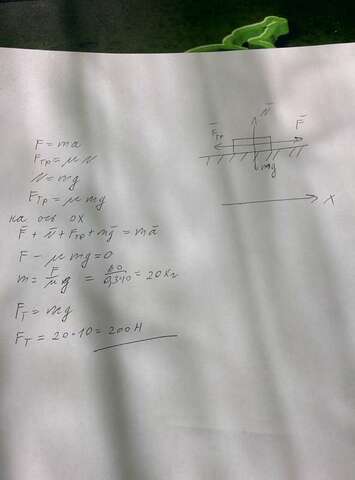 F = ma
Fтр = μ N
N = mg
Fтр = μ mg
на ось ox
F̄ + N̄ + F̄тр + mḡ = mā
F − μ mg = 0
m = F/μg = 60/0,3·10 = 20 кг
Fт = mg
Fт = 20·10 = 200 Н
N̄
F̄тр
F̄
mg
X